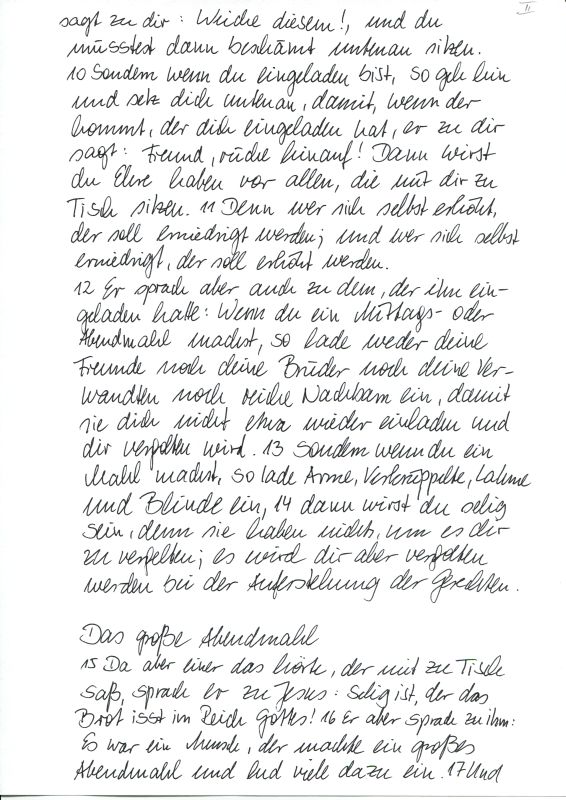 11
sagt zu dir: Weiche diesem!, und du
müsstest dann beschämt untenan sitzen.
10 Sondern wenn du eingeladen bist, so geh hin
und setz dich untenan, damit, wenn der
kommt, der dich eingeladen hat, er zu dir
sagt: Freund, rücke hinauf! Dann wirst
du Ehre haben vor allen, die mit dir zu
Tisch sitzen. 11 Denn wer sich selbst erhöht,
der soll erniedrigt werden; und wer sich selbst
erniedrigt, der soll erhöht werden.
12 Er sprach aber auch zu dem, der ihn ein-
geladen hatte: Wenn du ein Mittags- oder
Abendmahl machst, so lade weder deine
Freunde noch deine Brüder noch deine Ver-
wandten noch reiche Nachbarn ein, damit
sie dich nicht etwa wieder einladen und
dir vergolten wird. 13 Sondern wenn du ein
Mahl machst, so lade Arme, Verkrüppelte, Lahme
und Blinde ein, 14 dann wirst du selig
sein, denn sie haben nichts, um es dir
zu vergelten; es wird dir aber vergolten
werden bei der Auferstehung der Gerechten.
Das große Abendmahl
15 Da aber einer das hörte, der mit zu Tisch
saß, sprach er zu Jesus: Selig ist, der das
Brot isst im Reich Gottes! 16 Er aber sprach zu ihm:
Es war ein Mensch, der machte ein großes
Abendmahl und lud viele dazu ein. 17 Und